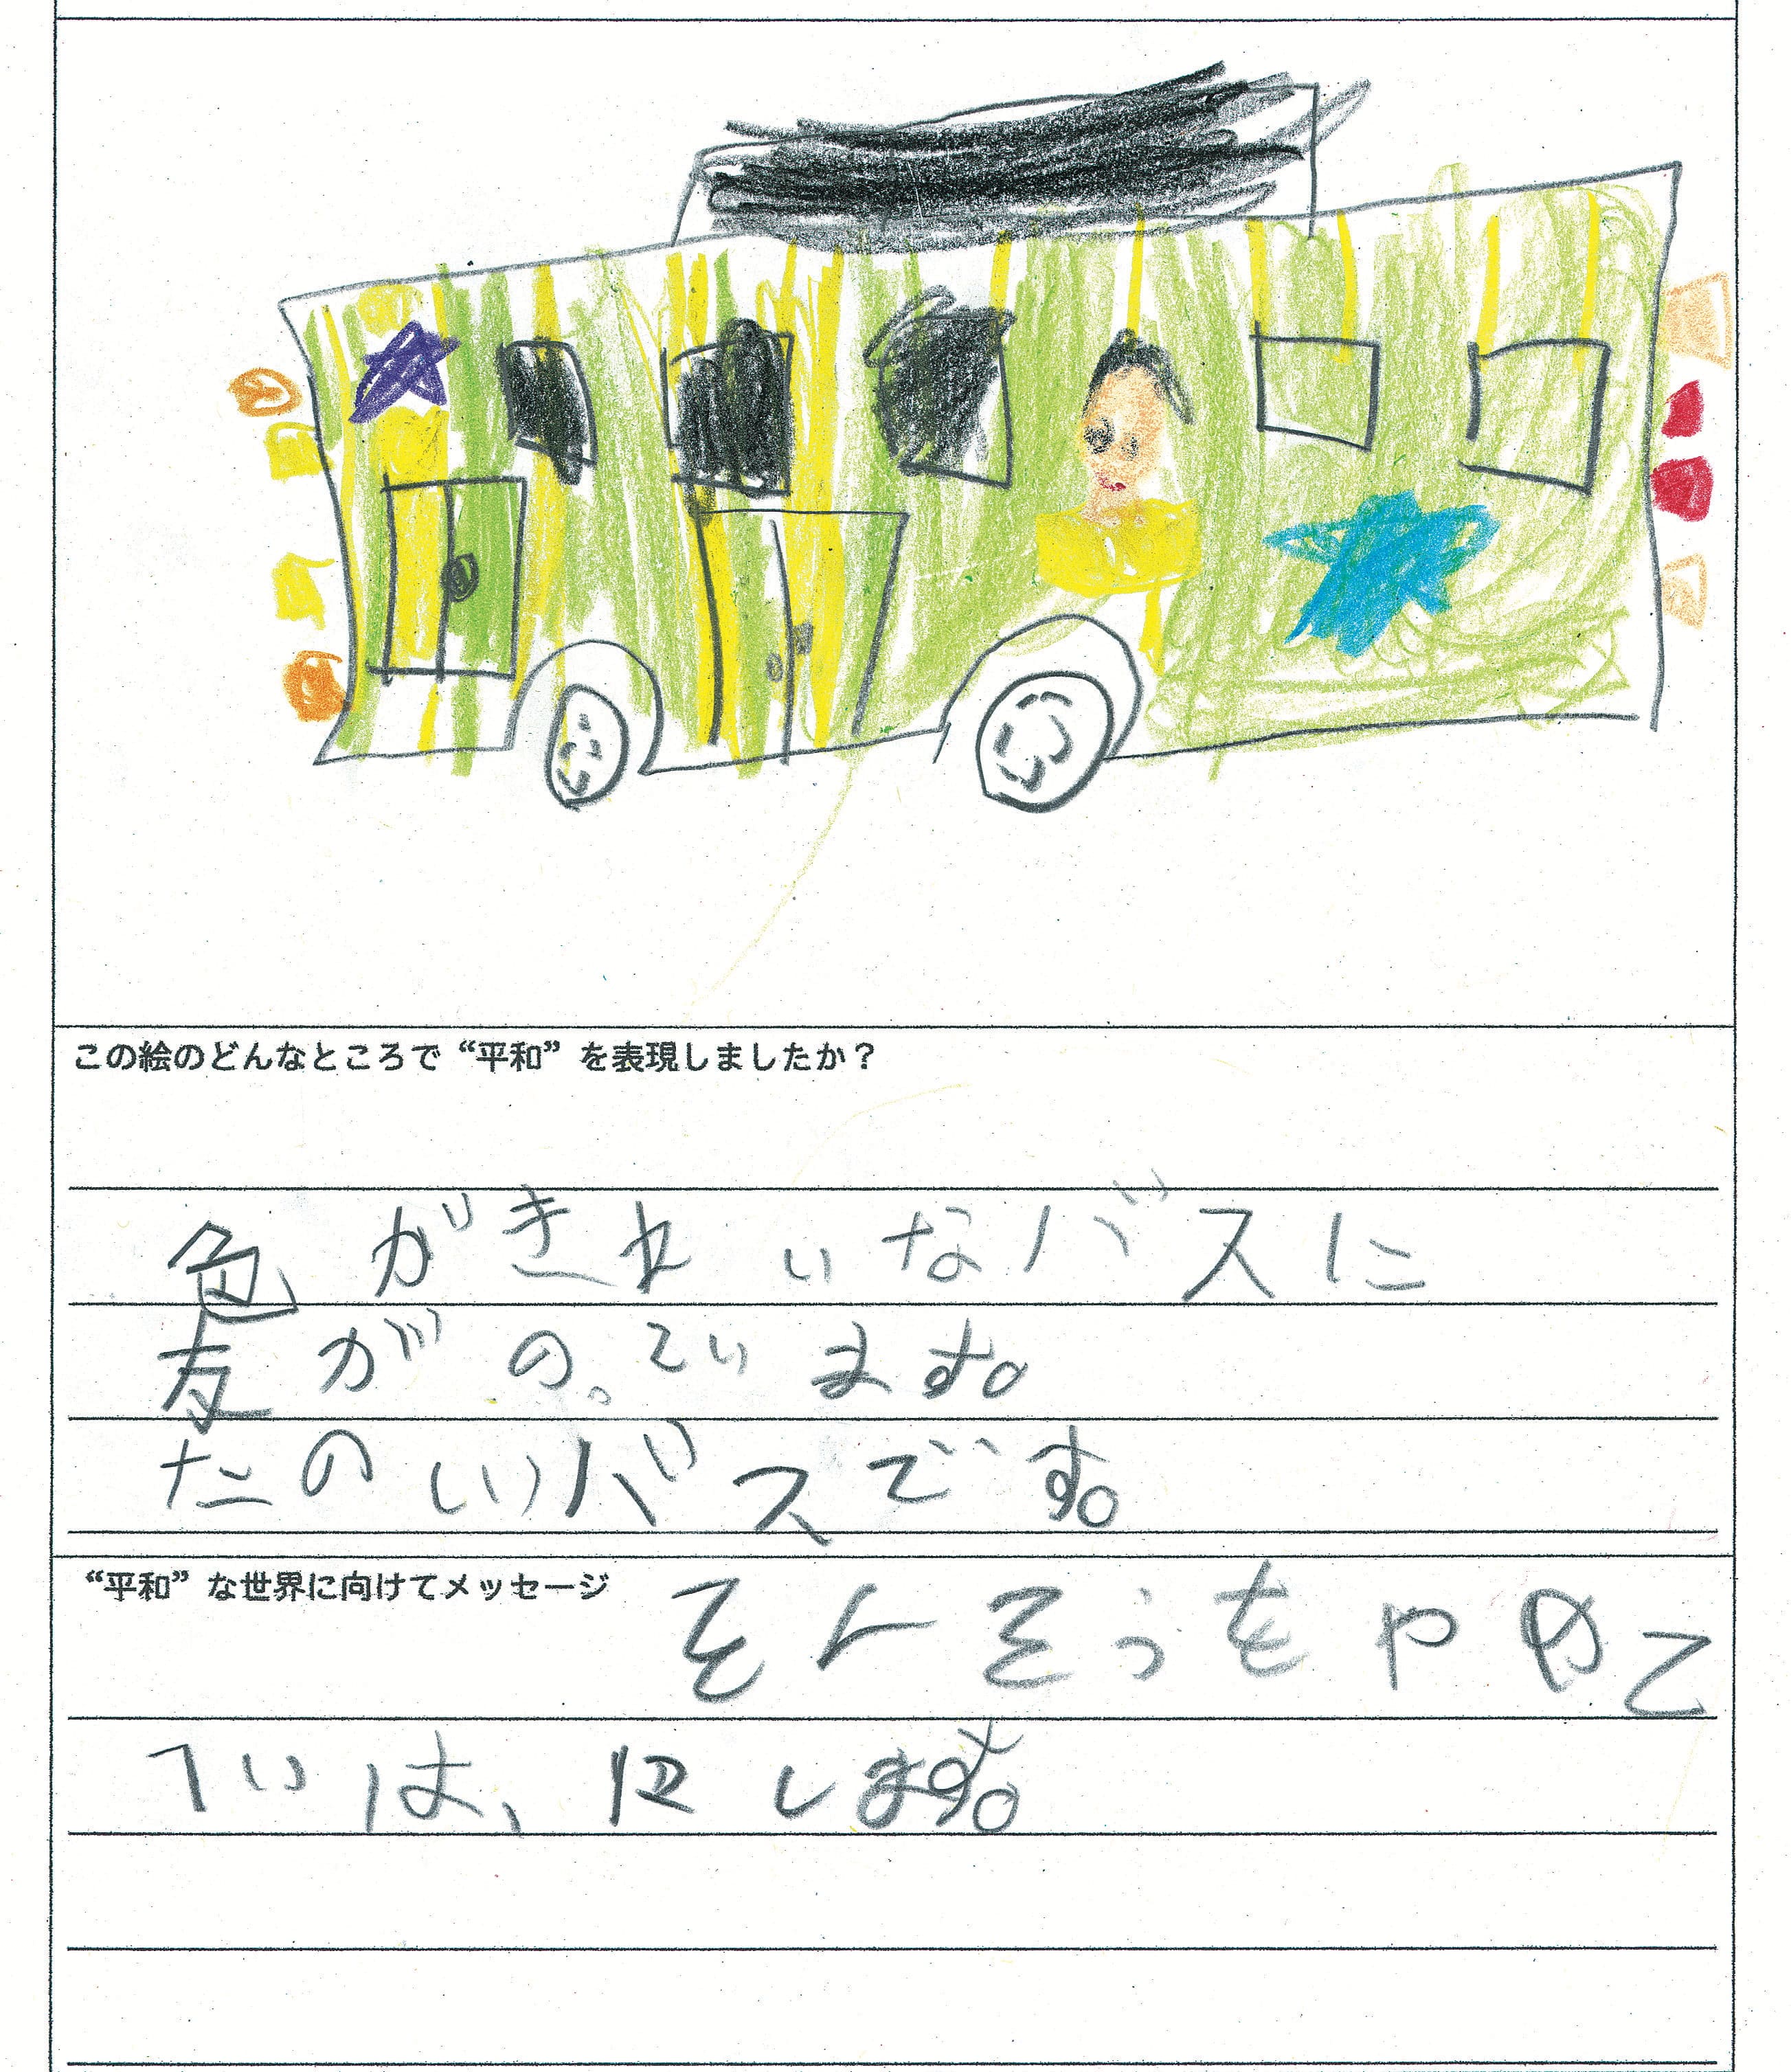 この絵のどんなところで“平和”を表現しましたか?
色がきれいなバスに
友がのっています。
たのしいバスです。
“平和”な世界に向けてメッセージ
せんそうをやめて
へいはにします。